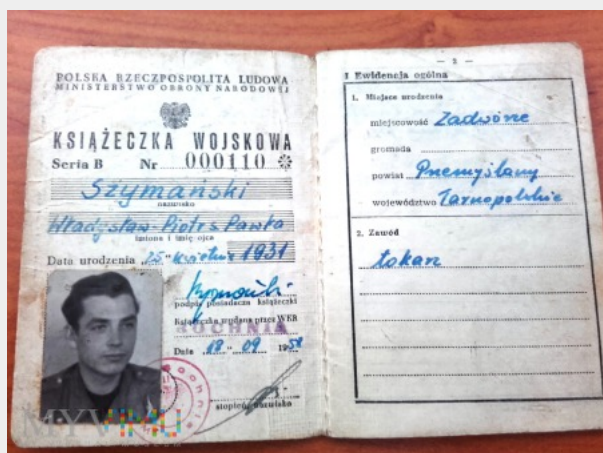 POLSKA RZECZPOSPOLITA LUDOWA
MINISTERSTWO OBRONY NARODOWEJ
KSIĄŻECZKA WOJSKOWA
Seria B Nr 000110
Szymański
nazwisko
Władysław-Piotr s. Pawła
imiona i imię ojca
Data urodzenia „25" kwietnia 1931
podpis posiadacza książeczki
Książeczka wydana przez WKR
BOCHNIA
Data „18" 09 195
stopień, nazwisko
— 2 —
I Ewidencja ogólna
1. Miejsce urodzenia
miejscowość Zadwórze
gromada
powiat Przemyślany
województwo Tarnopolskie
2. Zawód
tokarz
MYVIMU